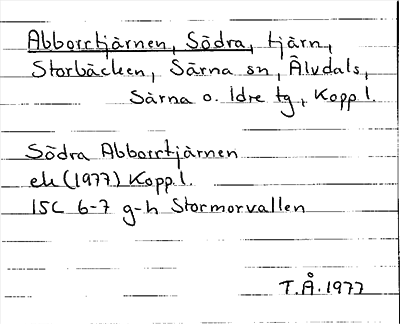 Abborrtjärnen, Södra, tjärn,
Storbäcken, Särna sn, Älvdals,
Särna o. Idre tg, Kopp l.
Södra Abborrtjärnen
ek (1977) Kopp l.
15C 6-7 g-h Stormorvallen
T.Å. 1977